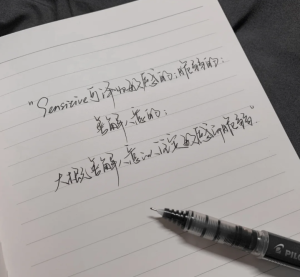 "Sensitive可译为敏感的;脆弱的;
善解人意的;
大概善解人意以注定敏感而脆弱."